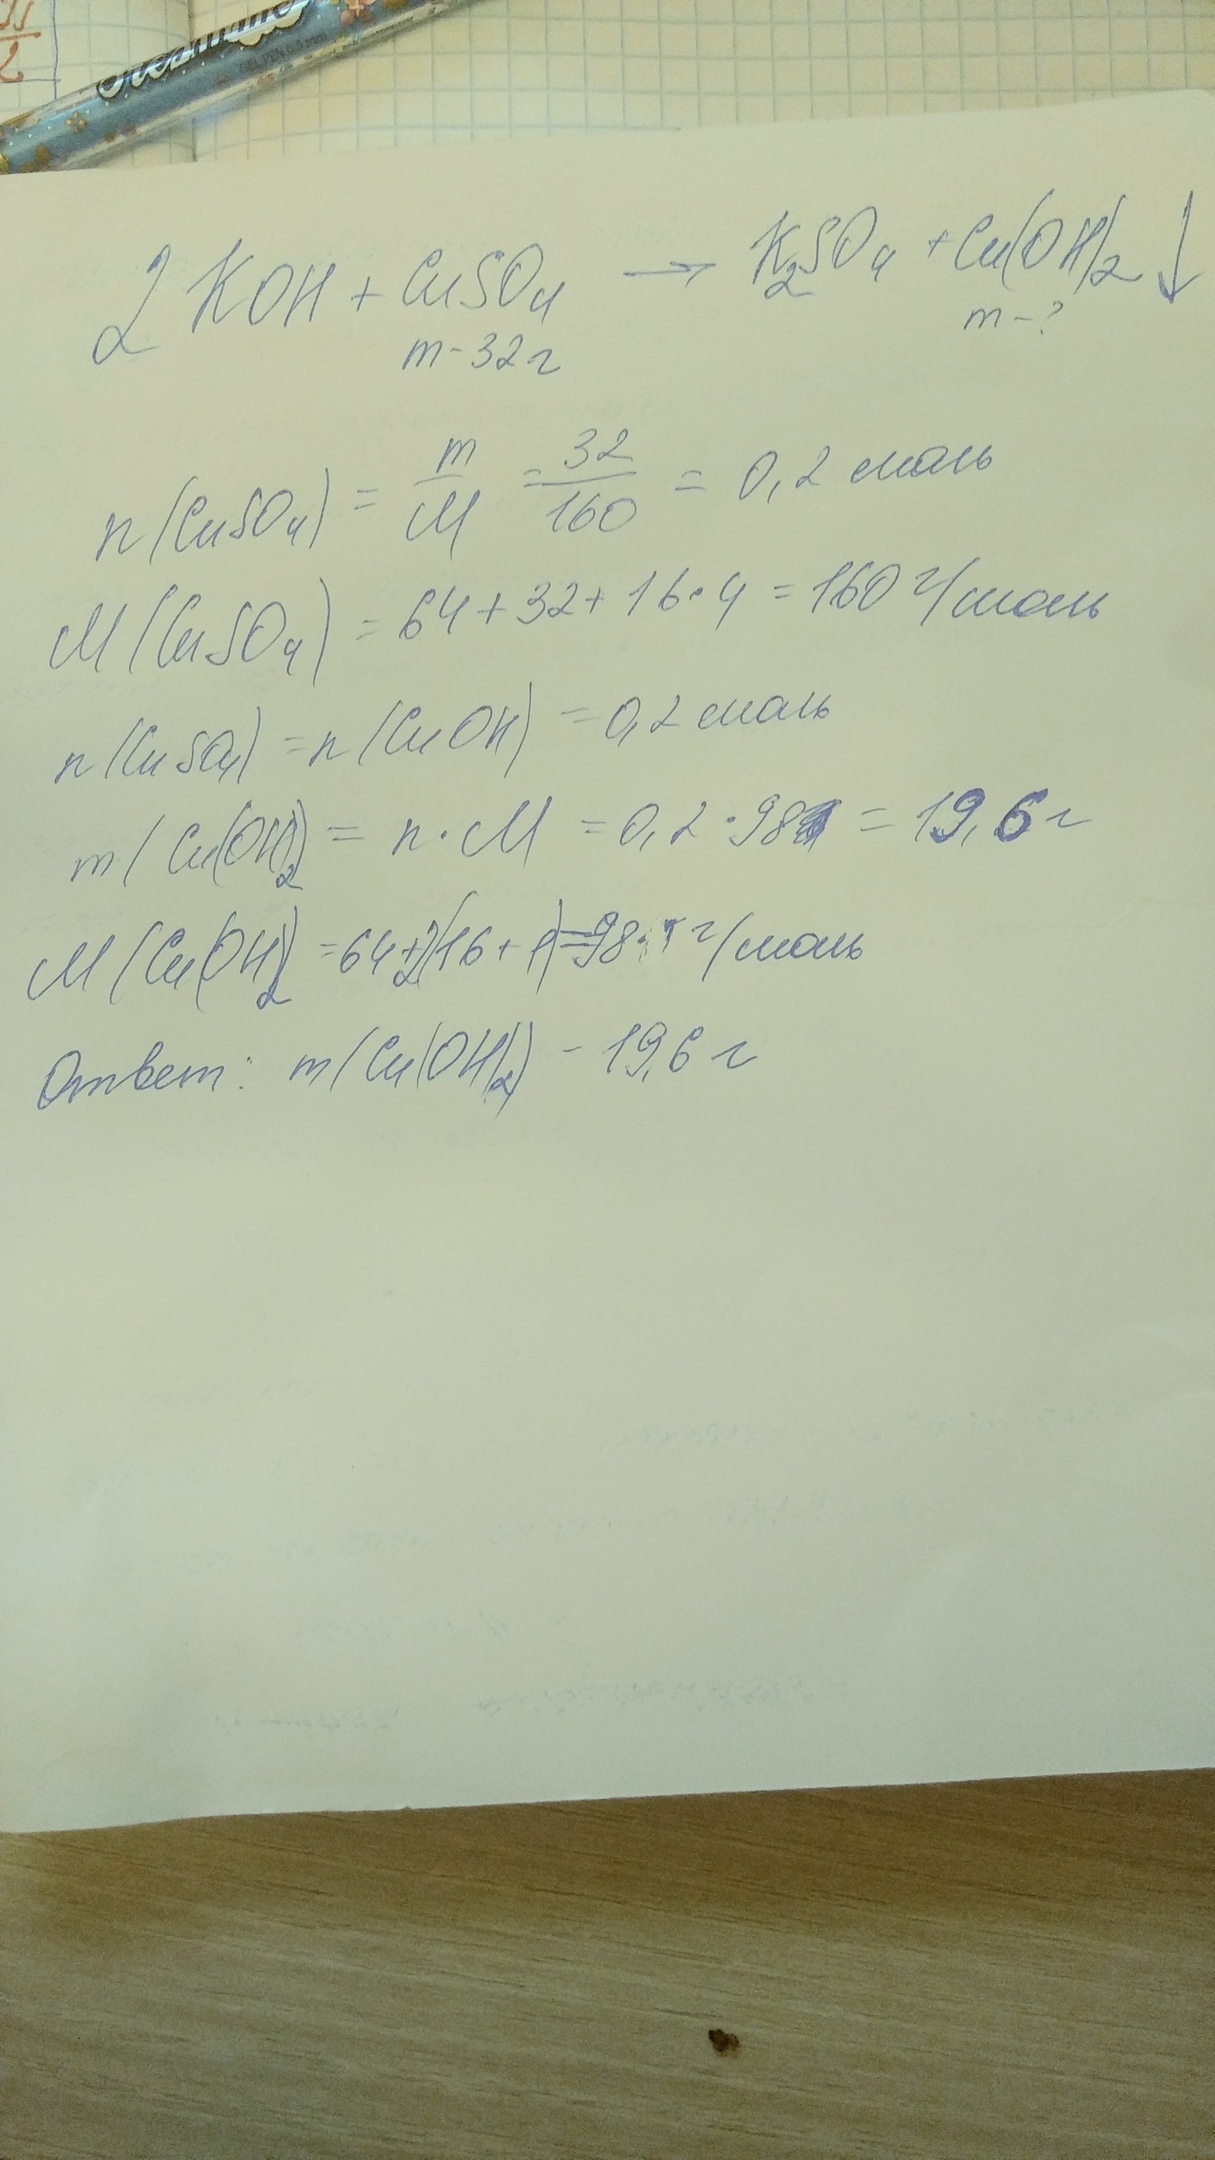 Dreamtime
GEL PEN 0.5 mm
2 KOH + CuSO₄ → K₂SO₄ + Cu(OH)₂ ↓
m - 32 г m - ?
n(CuSO₄) = m/M = 32/160 = 0,2 моль
M(CuSO₄) = 64 + 32 + 16 · 4 = 160 г/моль
n(CuSO₄) = n(CuOH) = 0,2 моль
m(Cu(OH)₂) = n · M = 0,2 · 98 = 19,6 г
M(Cu(OH)₂ = 64 + 2(16 + 1) = 98 г/моль
Ответ: m(Cu(OH)₂) - 19,6 г